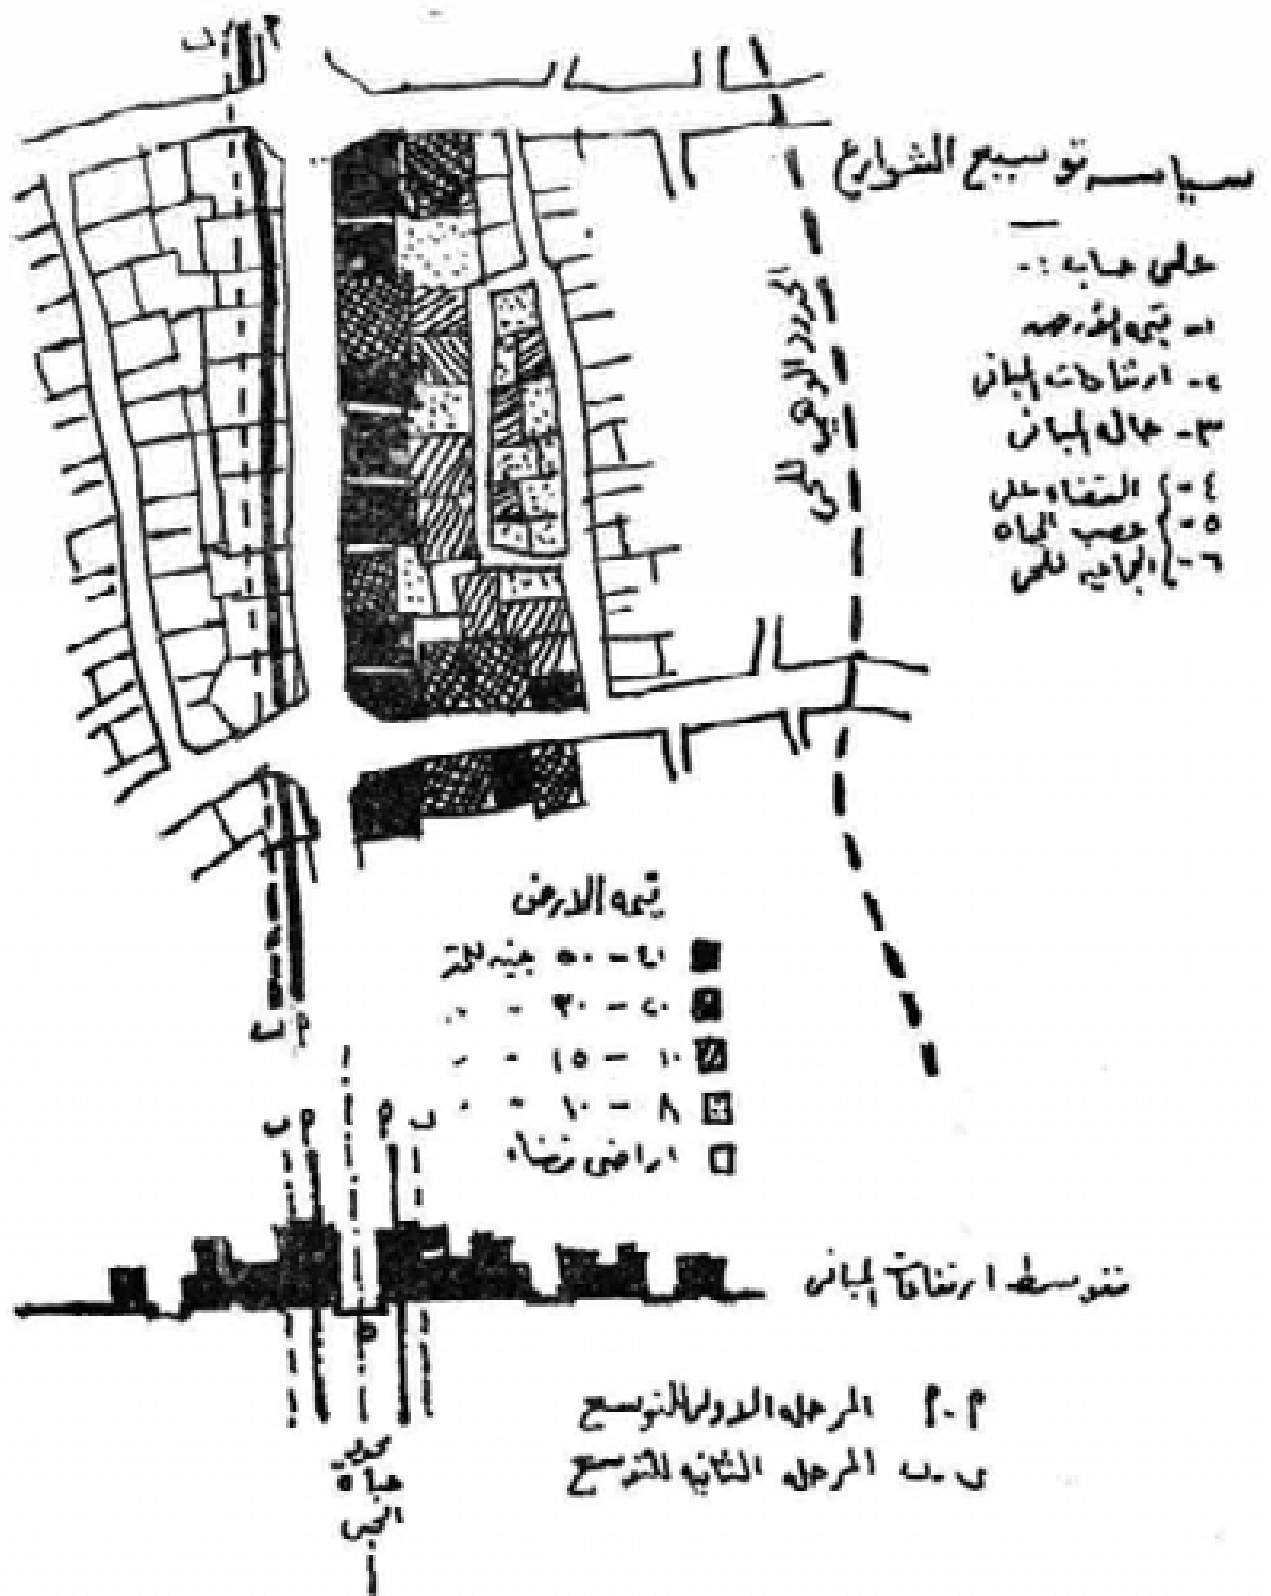 ب م
سياسه توسيع الشوارع
على حساب :-
١- قيمه الأرض
٢- ارتفاعات المبانى
٣- حاله المبانى
٤- القضاء على
٥- عصب الحياه
٦- الجماعيه للحى
الحدود
للحى
قيمه الارض
٤١ - ٥٠ جنيه للمتر
٢٠ - ٣٠ " "
١٠ - ١٥ " "
٨ - ١٠ " "
اراضى فضاء
ب م
ب م م ب
متوسط ارتفاعات المبانى
م - م المرحله الاولى للتوسع
ب - ب المرحله الثانيه للتوسع
محور
حياة
الحى